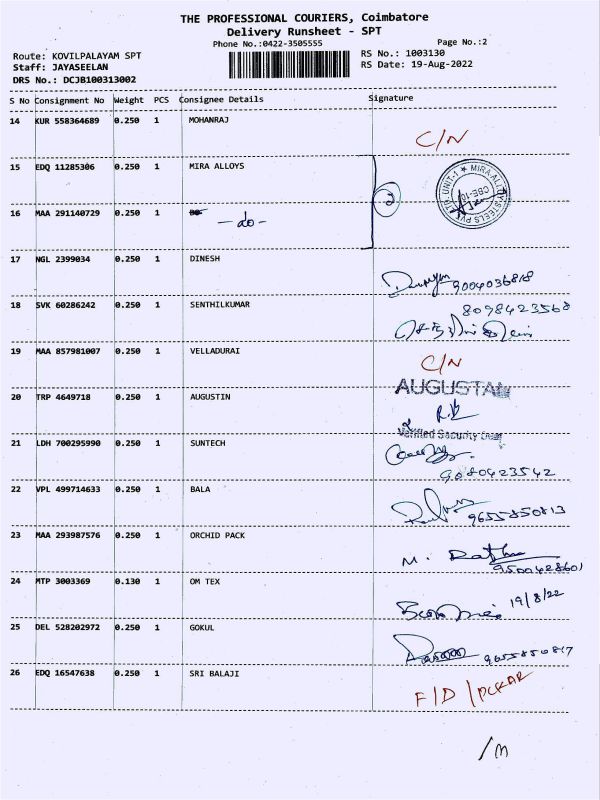 THE PROFESSIONAL COURIERS, Coimbatore
Delivery Runsheet - SPT
Phone No.:0422-3505555
Page No.:2
Route: KOVILPALAYAM SPT
RS No.: 1003130
Staff: JAYASEELAN
RS Date: 19-Aug-2022
DRS No.: DCJB100313002
S No Consignment No Weight PCS Consignee Details Signature
14 KUR 558364689 0.250 1 MOHANRAJ
C/N
15 EDQ 11285306 0.250 1 MIRA ALLOYS
2
16 MAA 291140729 0.250 1 -do-
17 NGL 2399034 0.250 1 DINESH
9004036818
18 SVK 60286242 0.250 1 SENTHILKUMAR
8098423568
19 MAA 857981007 0.250 1 VELLADURAI
C/N
20 TRP 4649718 0.250 1 AUGUSTIN
AUGUSTAN
Verified Security
21 LDH 700295990 0.250 1 SUNTECH
9080423542
22 VPL 499714633 0.250 1 BALA
9655850813
23 MAA 293987576 0.250 1 ORCHID PACK
M.
9500428601
24 MTP 3003369 0.130 1 OM TEX
19/8/22
25 DEL 528202972 0.250 1 GOKUL
9655850817
26 EDQ 16547638 0.250 1 SRI BALAJI
F/D